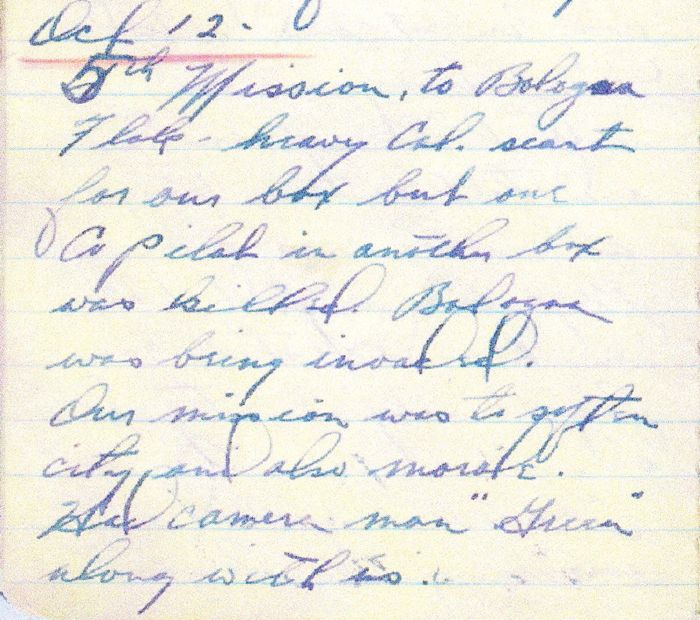 Oct 12-
5th Mission, to Bologna
Flak - heavy Cal. scant
for our box but one
Co pilot in another box
was killed. Bologna
was being invaded.
Our mission was to soften
city and also morale.
Had camera man "Green"
along with us.